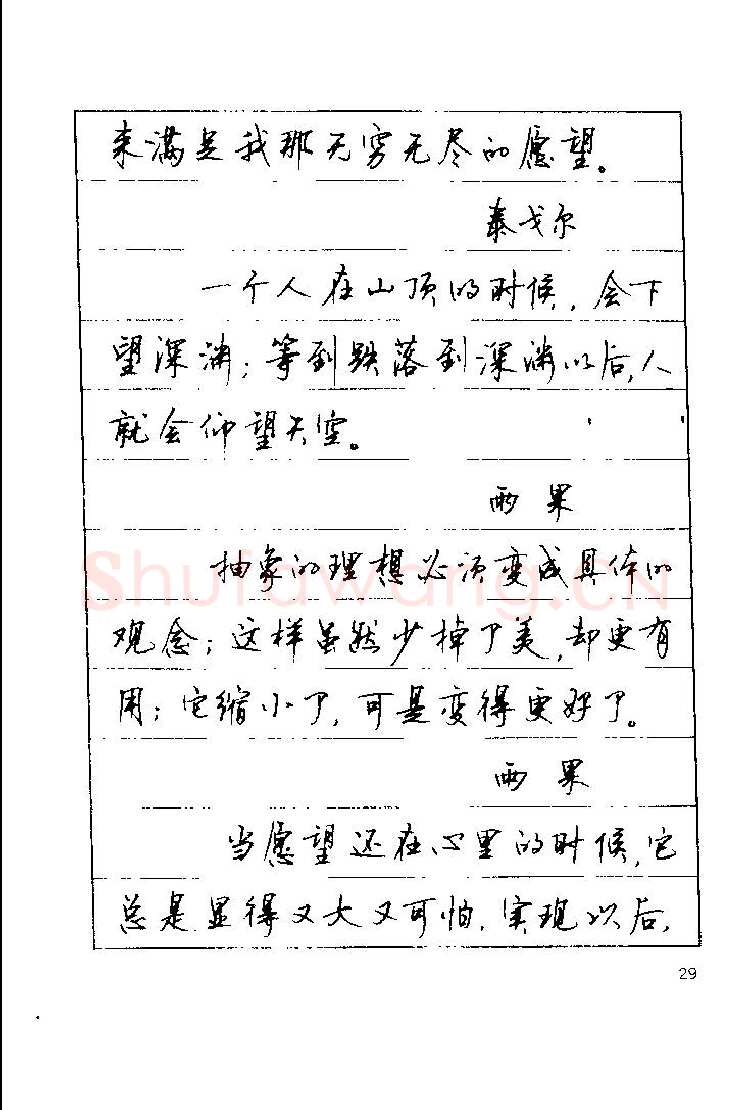 来满足我那无穷无尽的愿望。
泰戈尔
一个人在山顶的时候，会下
望深渊；等到跌落到深渊以后，人
就会仰望天空。
雨果
抽象的理想必须变成具体的
观念；这样虽然少掉了美，却更有
用；它缩小了，可是变得更好了。
雨果
当愿望还在心里的时候，它
总是显得又大又可怕，实现以后，
29
Shufawang.CN